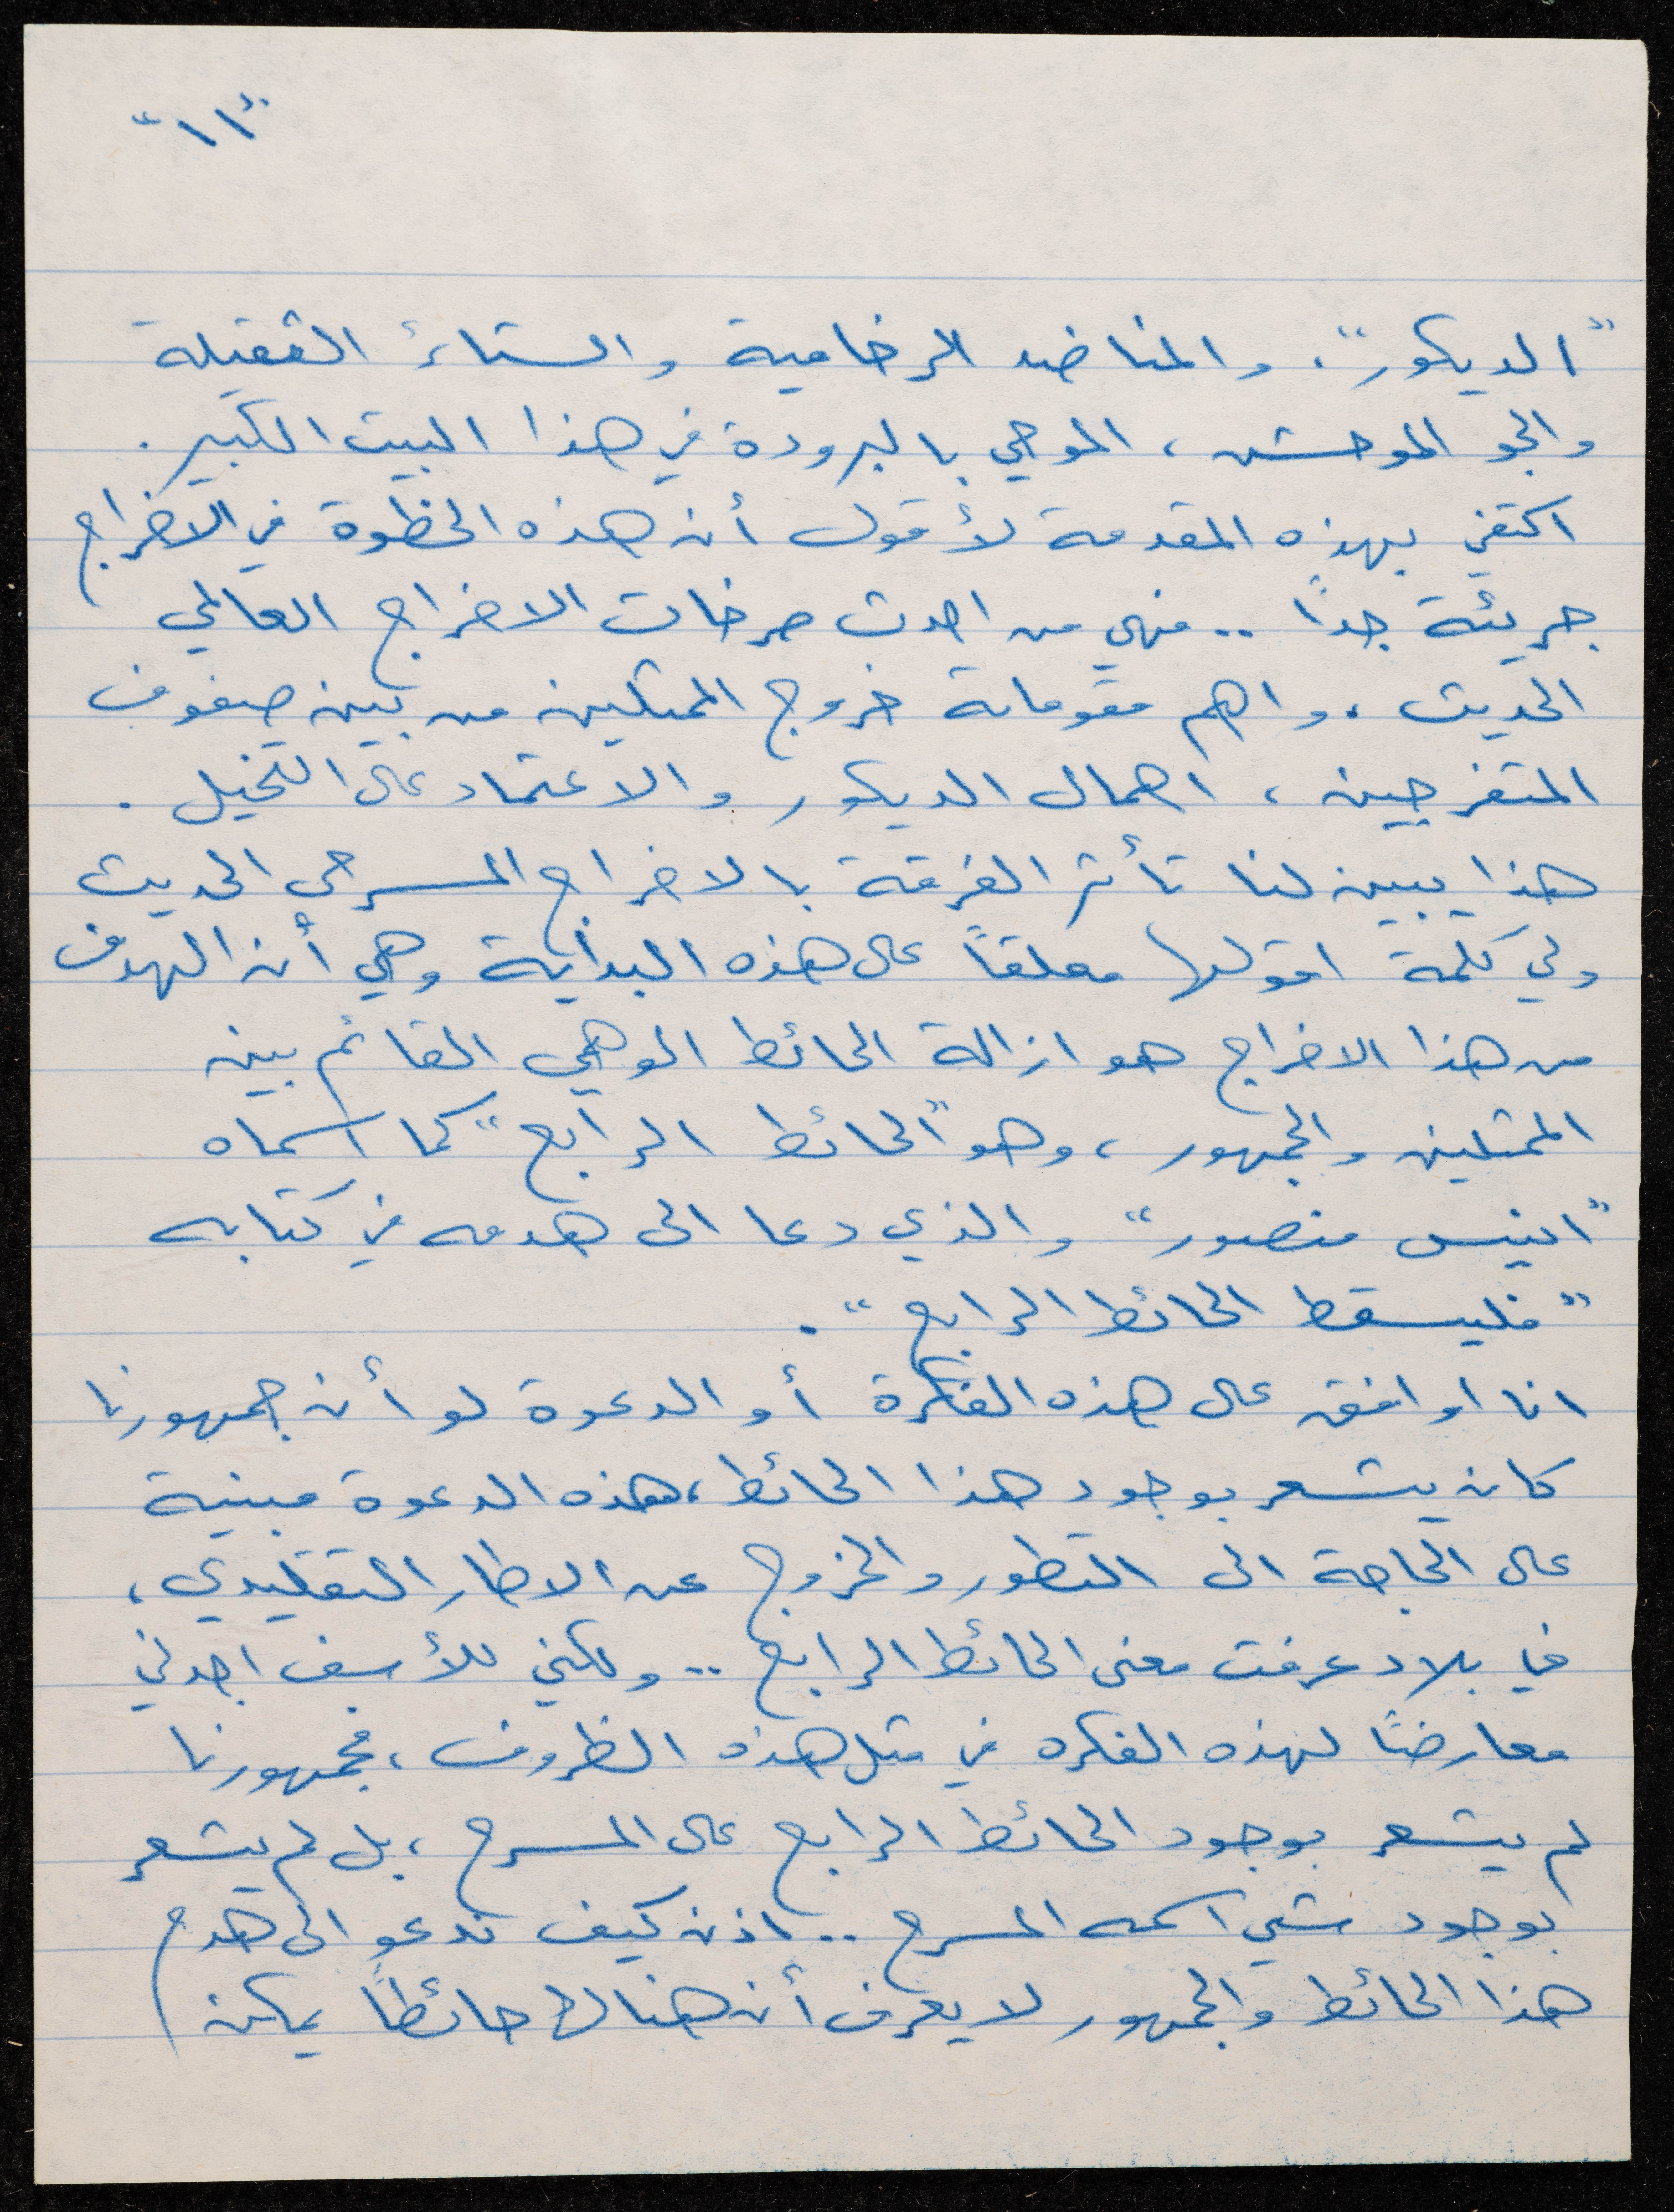 "١١"
"الديكور"، والمناضد الرخامية والستائر الثقيلة
والجو الموحش، الموحي بالبرودة في هذا البيت الكبير.
اكتفي بهذه المقدمة لأقول أن هذه الخطوة في الاخراج
جريئة جداً .. فهي من احدث صرخات الاخراج العالمي
الحديث، واهم مقوماته خروج الممثلين من بين صفوف
المتفرجين، اهمال الديكور والاعتماد على التخيل.
هذا يبين لنا تأثر الفرقة بالاخراج المسرحي الحديث
ولي كلمة اقولها معلقاً على هذه البداية وهي أن الهدف
من هذا الاخراج هو ازالة الحائط الوهمي القائم بين
الممثلين والجمهور، وهو "الحائط الرابع" كما اسماه
"انيس منصور" والذي دعا الى هدمه في كتابه
"فليسقط الحائط الرابع".
انا اوافق على هذه الفكرة أو الدعوة لو أن جمهورنا
كان يشعر بوجود هذا الحائط، هذه الدعوة مبنية
على الحاجة الى التطور والخروج عن الاطار التقليدي،
في بلاد عرفت معنى الحائط الرابع .. ولكني للأسف اجدني
معارضاً لهذه الفكره في مثل هذه الظروف، فجمهورنا
لم يشعر بوجود الحائط الرابع على المسرح، بل لم يشعر
بوجود شي اسمه المسرح .. اذن كيف ندعو الى هدم
هذا الحائط والجمهور لا يعرف أن هناك حائطاً يمكن